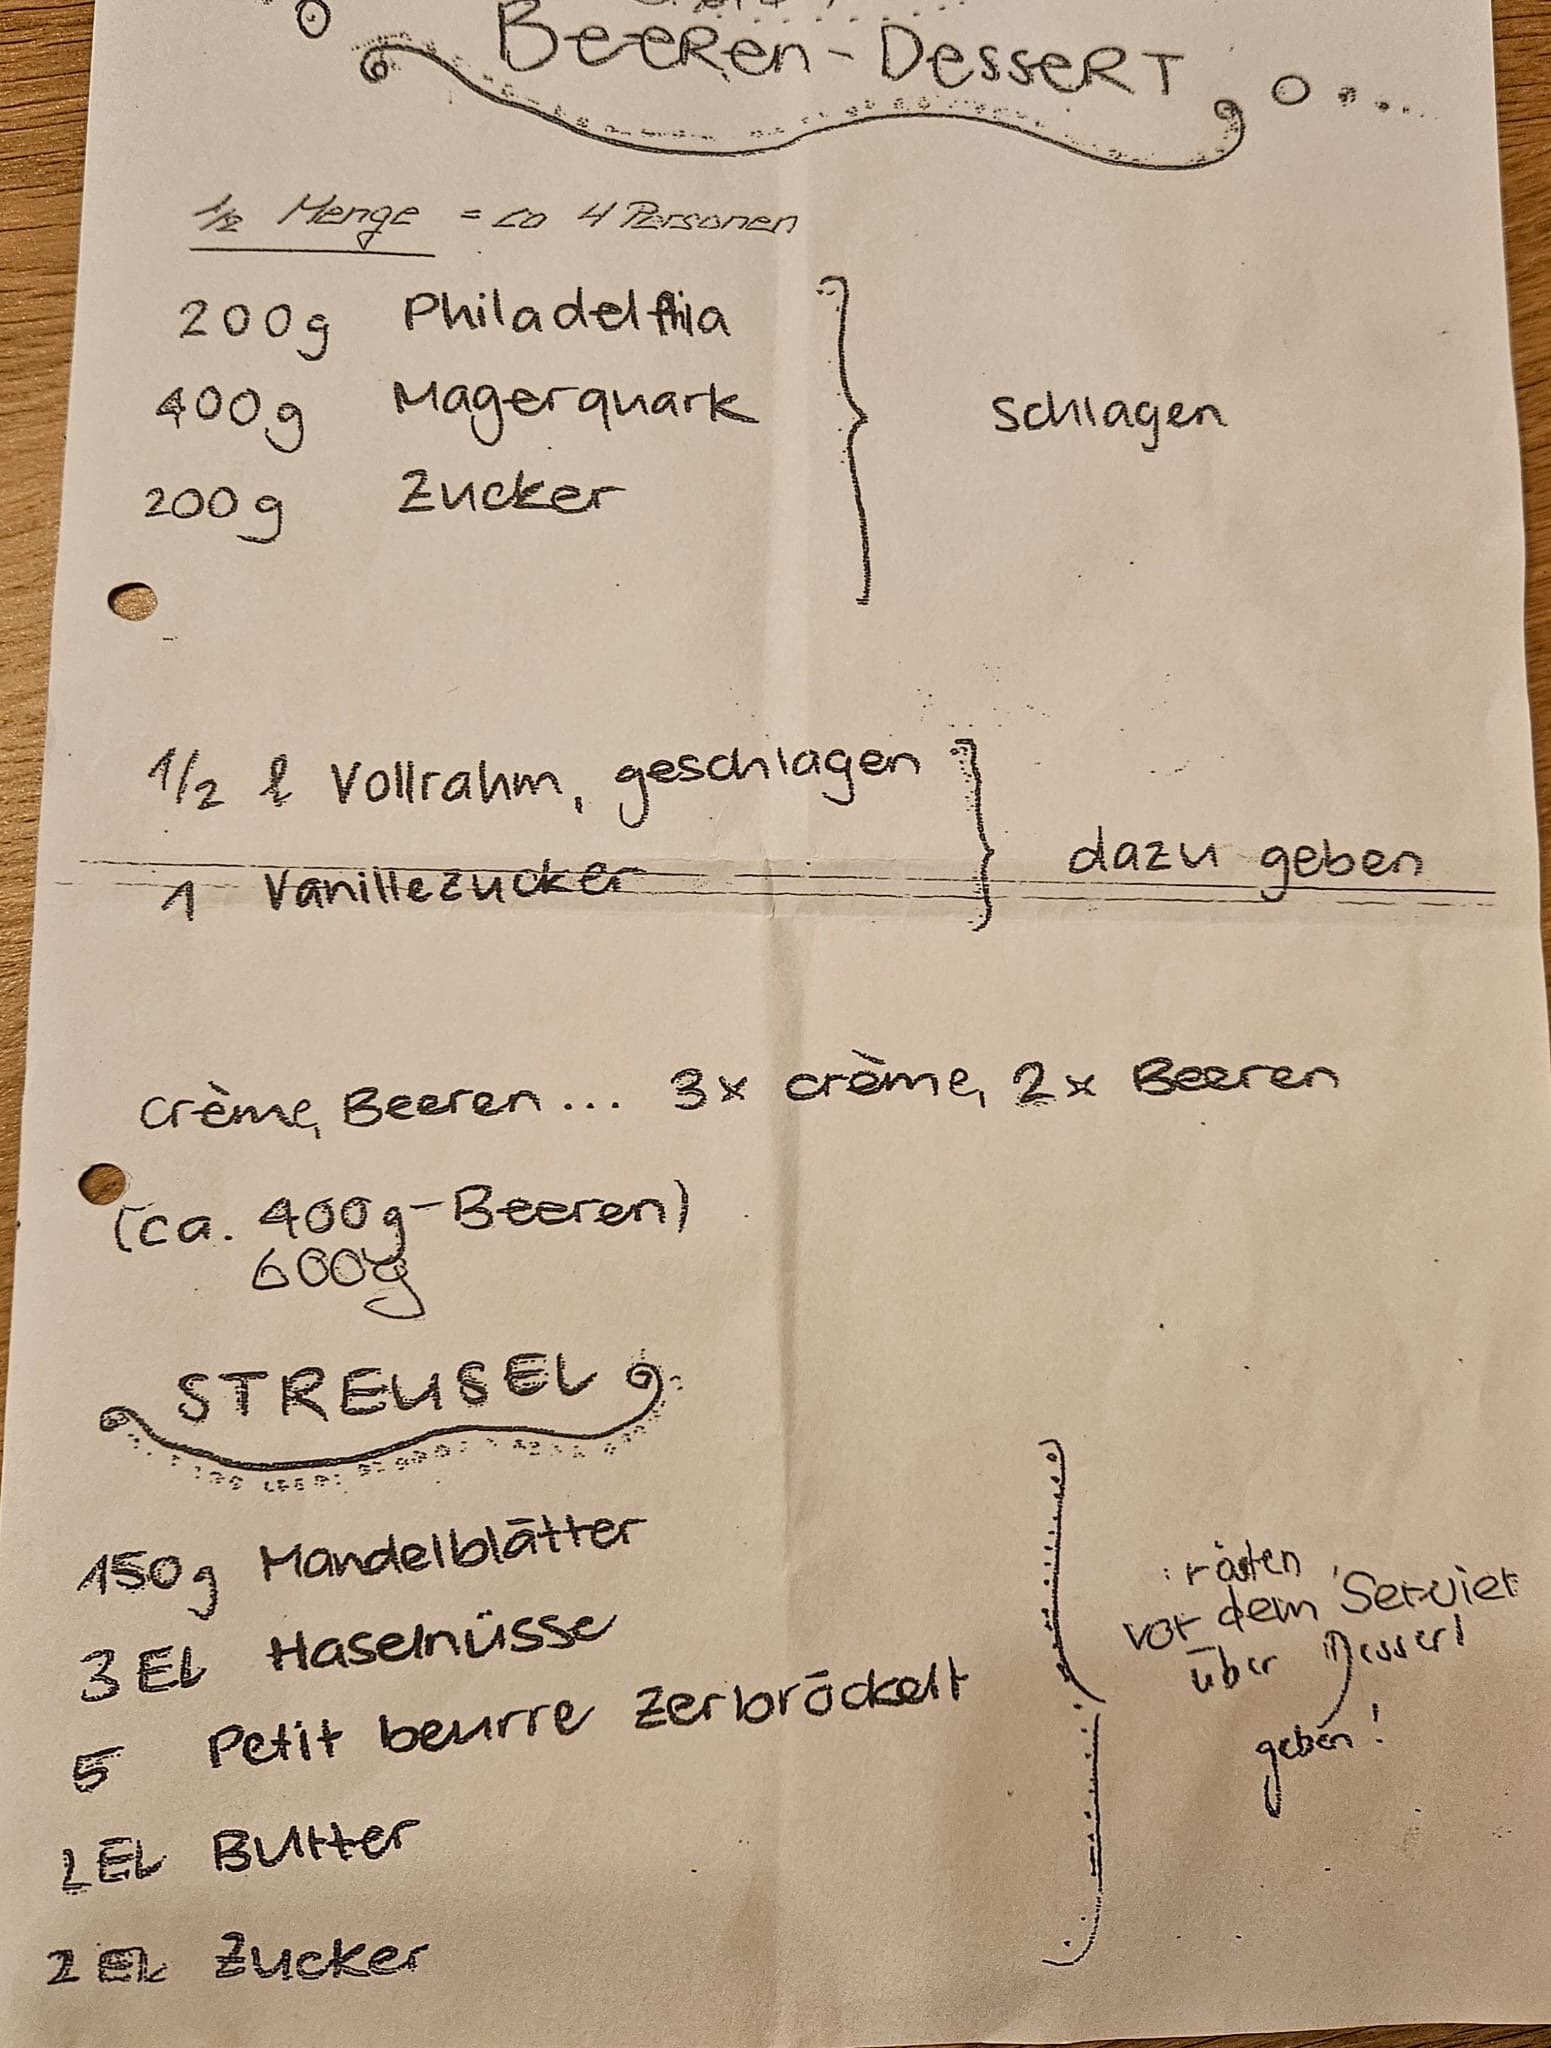 Beeren-Dessert
1/2 Menge = ca 4 Personen
200g Philadelphia
400g Magerquark
200g Zucker
schlagen
1/2 l Vollrahm, geschlagen
1 Vanillezucker
dazu geben
crème, Beeren... 3x crème, 2x Beeren
(ca. 400g-Beeren)
600g
STREUSEL
150g Mandelblätter
3 EL Haselnüsse
5 Petit beurre zerbröckelt
1 EL Butter
2 EL Zucker
rösten
vor dem Servier
über Dessert
geben!